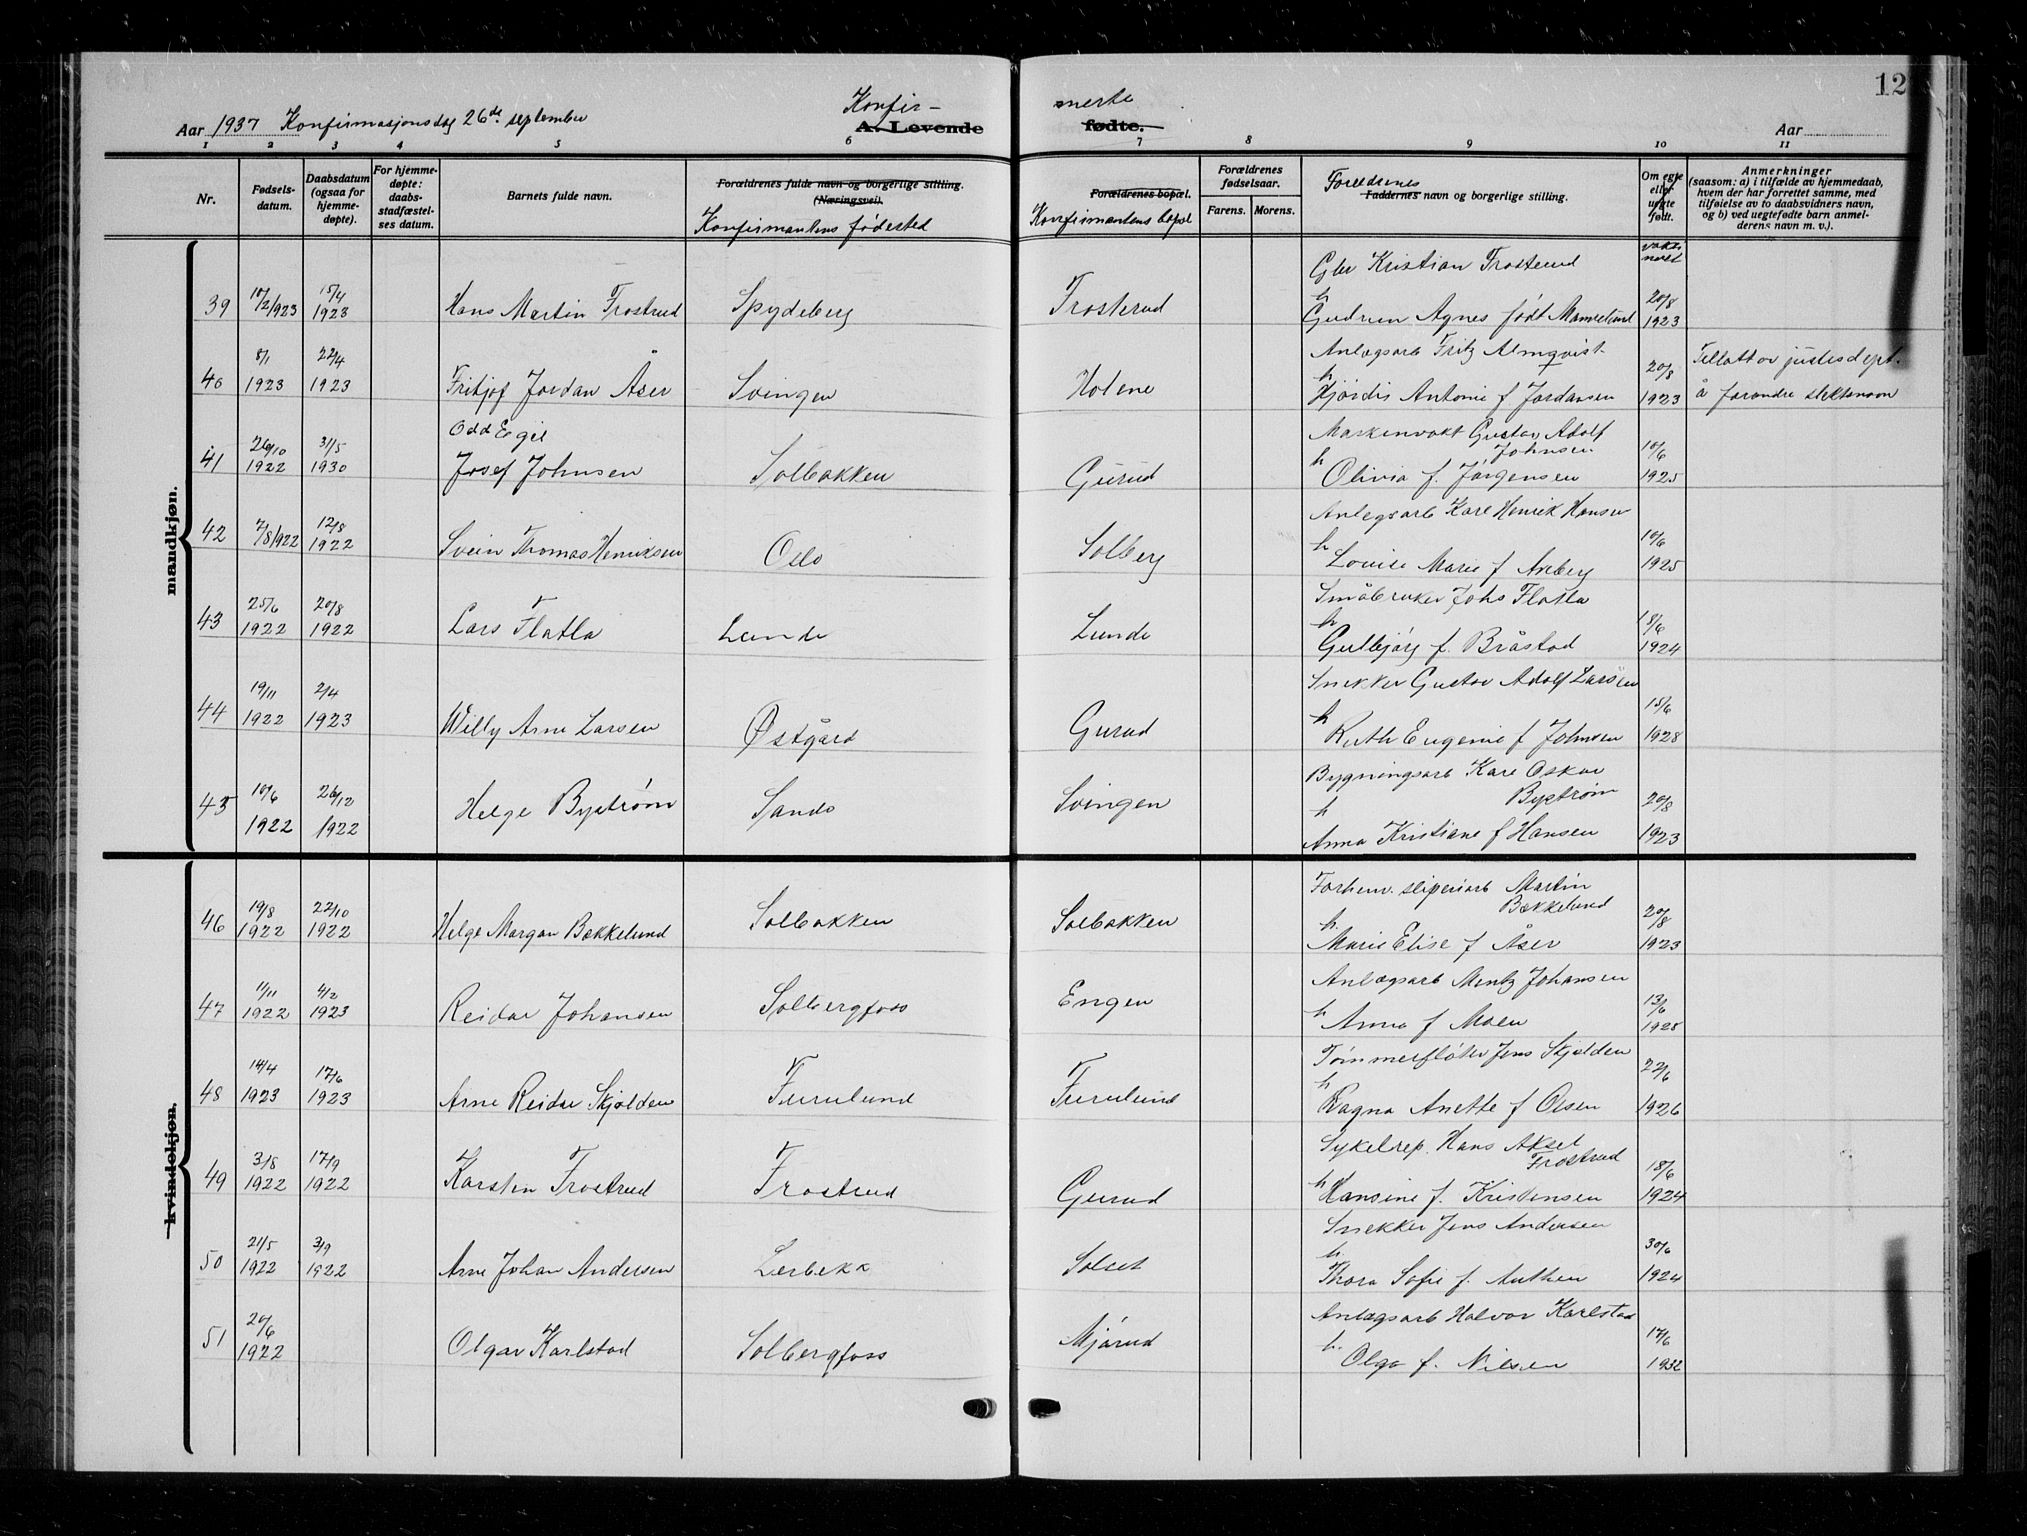 12
Aar 1937 Konfirmasjonsdag 26de september
Konfir-
A. Levende
merte
fødte.
Aar
1 2 3 4 5 6 7 8 9 10 11
Nr.
Fødsels-
datum.
Daabsdatum
(ogsaa for
hjemme-
døpte).
For hjemme-
døpte:
daabs-
stadfæstel-
ses datum.
Barnets fulde navn.
Forældrenes fulde navn og borgerlige stilling.
(Næringsvei).
Konfirmantens fødested
Forældrenes bopæl.
Konfirmantens bopel
Forældrenes
fødselsaar.
Farens. Morens.
Foreldrenes
Faddernes navn og borgerlige stilling.
Om egte
eller
uegte
født.
Anmerkninger
(saasom: a) i tilfælde av hjemmedaab,
hvem der har forrettet samme, med
tilføielse av to daabsvidners navn,
og b) ved uegtefødte barn anmel-
derens navn m. v.).
mandkjøn.
vaksi
nert
Gbr Kristian Trosterud
39 10/2 1923 15/4 1923 Hans Martin Trostrud Spydeberg Trosterud h Gudrun Agnes født 20/8 1923
Anlægsarb Fritz Almqvist
40 8/1 1923 22/4 1923 Fritjof Jordan Åser Svingen Holene h Hjørdis Antonie f Jordansen 20/8 1923 Tillatt av justisdept.
å forandre slektsnavn
Odd Egil
Maskinvakt Gustav Adolf
Johnsen
41 26/10 1922 31/5 1930 Josef Johnsen Solbakken Gurud h Olivia f. Jørgensen 10/6 1925
Anlegsarb Karl Henrik Hansen
42 7/8 1922 12/8 1922 Svein Thomas Henriksen Oslo Solberg h Louise Marie f Arnberg 10/6 1925
Småbruker Johs Flatla
43 25/6 1922 20/8 1922 Lars Flatla Lunde Lunde h Gulbjørg f. Bråstad 18/6 1924
Snekker Gustav Adolf Larsen
44 19/11 1922 2/4 1923 Willy Arne Larsen Østgård Gurud h Ruth Eugenie f Johnsen 15/6 1928
Bygningsarb Karl Oskar
Bystrøm
45 10/6 1922 26/12 1922 Helge Bystrøm Sando Svingen h Anna Kristiane f Hansen 20/8 1923
kvindekjøn.
Forhenv. sliperiarb Martin
Bækkelund
46 19/8 1922 22/10 1922 Helge Morgan Bækkelund Solbakken Solbakken h. Marie Elise f Åser 20/8 1923
Anlægsarb Mentz Johansen
47 11/11 1922 4/2 1923 Reidar Johansen Solbergfoss Engen h Anna f Moen 13/6 1925
Tømmerfløter Jens Skjolden
48 14/4 1923 17/6 1923 Arne Reidar Skjolden Furulund Furulund h Ragna Anette f Olsen 22/6 1926
Sykelrep. Hans Aksel
Trostrud
49 3/8 1922 17/9 1922 Karsten Trostrud Trostrud Gurud h Hansine f. Kristensen 18/6 1924
Snekker Jens Andersen
50 21/5 1922 3/9 1922 Arne Johan Andersen Lerbekk Solset h. Thora Sofie f. Authen 30/6 1924
Anlægsarb Halvor Karlstad
51 20/6 1922 Olgar Karlstad Solbergfoss Mjørud h. Olga f. Nilsen 17/6 1932